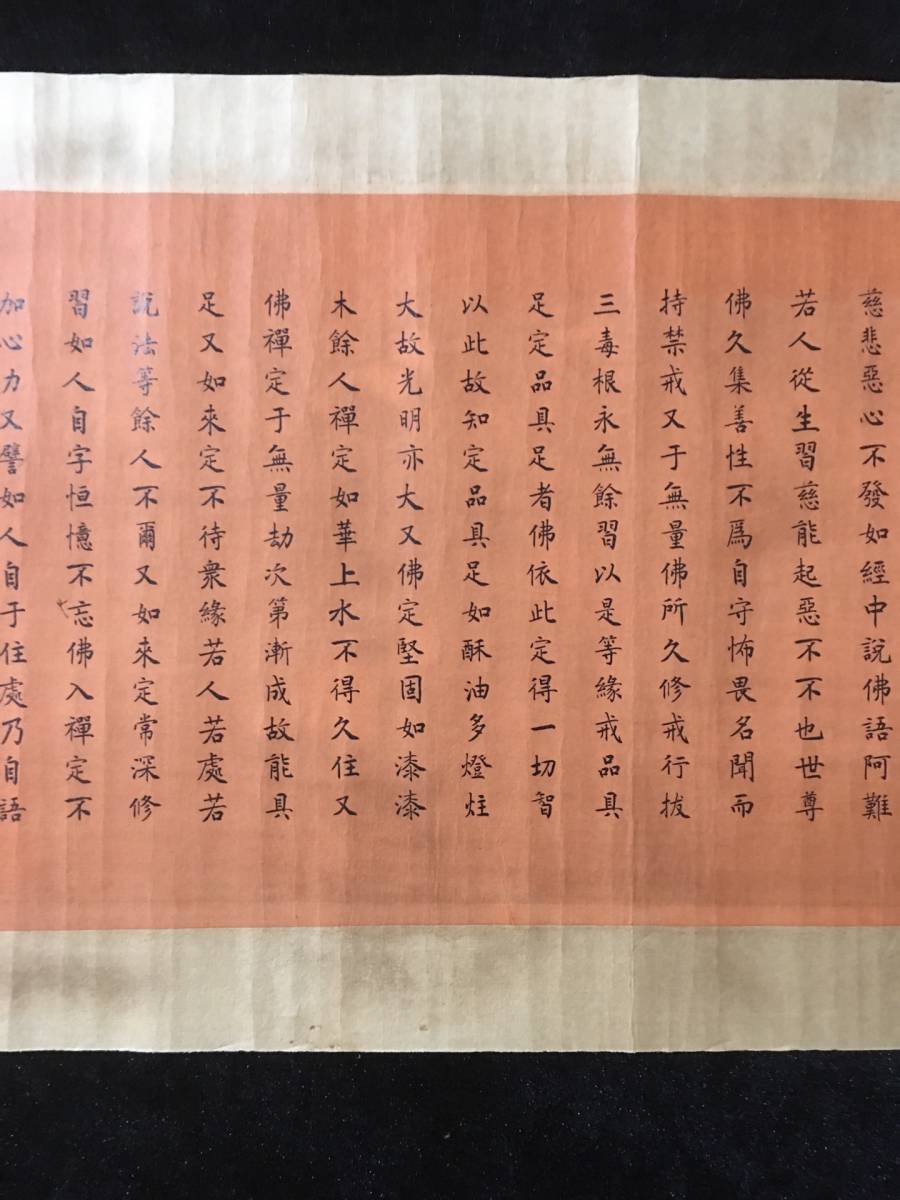 慈悲惡心不發如經中說佛語阿難
若人從生習慈能起惡不不也世尊
佛久集善性不爲自守怖畏名聞而
持禁戒又于無量佛所久修戒行拔
三毒根永無餘習以是等緣戒品具
足定品具足者佛依此定得一切智
以此故知定品具足如酥油多燈炷
大故光明亦大又佛定堅固如漆漆
木餘人禪定如華上水不得久住又
佛禪定于無量劫次第漸成故能具
足又如來定不待衆緣若人若處若
説法等餘人不爾又如來定常深修
習如人自字恒憶不忘佛入禪定不
加心力又譬如人自于住處乃自語